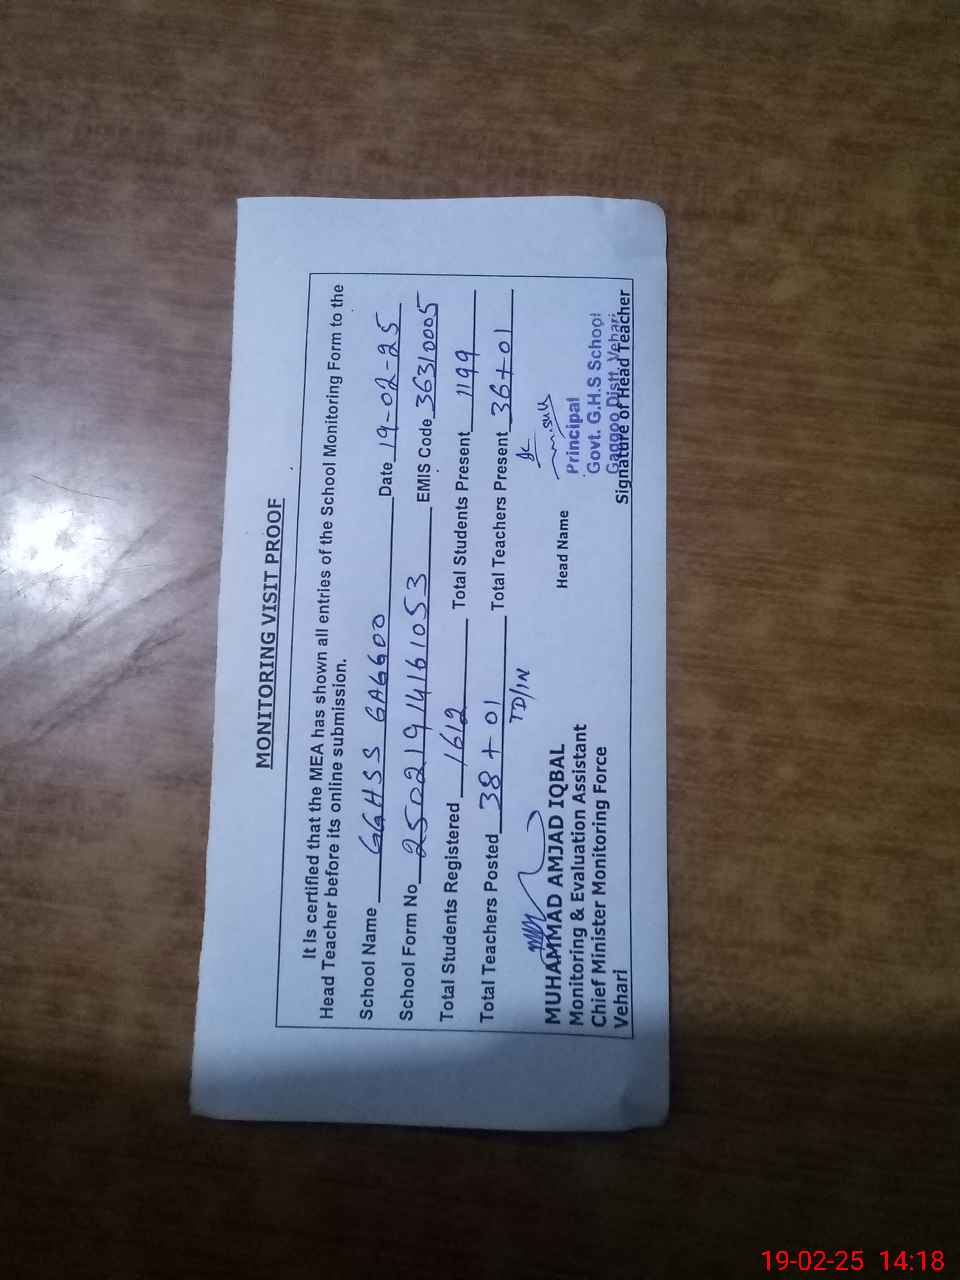 MONITORING VISIT PROOF
It is certified that the MEA has shown all entries of the School Monitoring Form to the
Head Teacher before its online submission.
School Name GGHSS GAGGOO Date 19-02-25
School Form No 25021914161053 EMIS Code 36310005
Total Students Registered 1612 Total Students Present 1199
Total Teachers Posted 38+01 Total Teachers Present 36+01
TD/IN
MUHAMMAD AMJAD IQBAL
Monitoring & Evaluation Assistant
Chief Minister Monitoring Force
Vehari
Head Name
Principal
Govt. G.H.S School
Gaggoo Distt. Vehari
Signature of Head Teacher
19-02-25 14:18